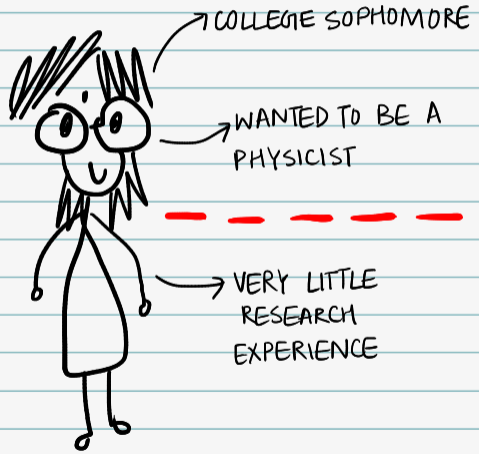 COLLEGE SOPHOMORE
WANTED TO BE A
PHYSICIST
VERY LITTLE
RESEARCH
EXPERIENCE